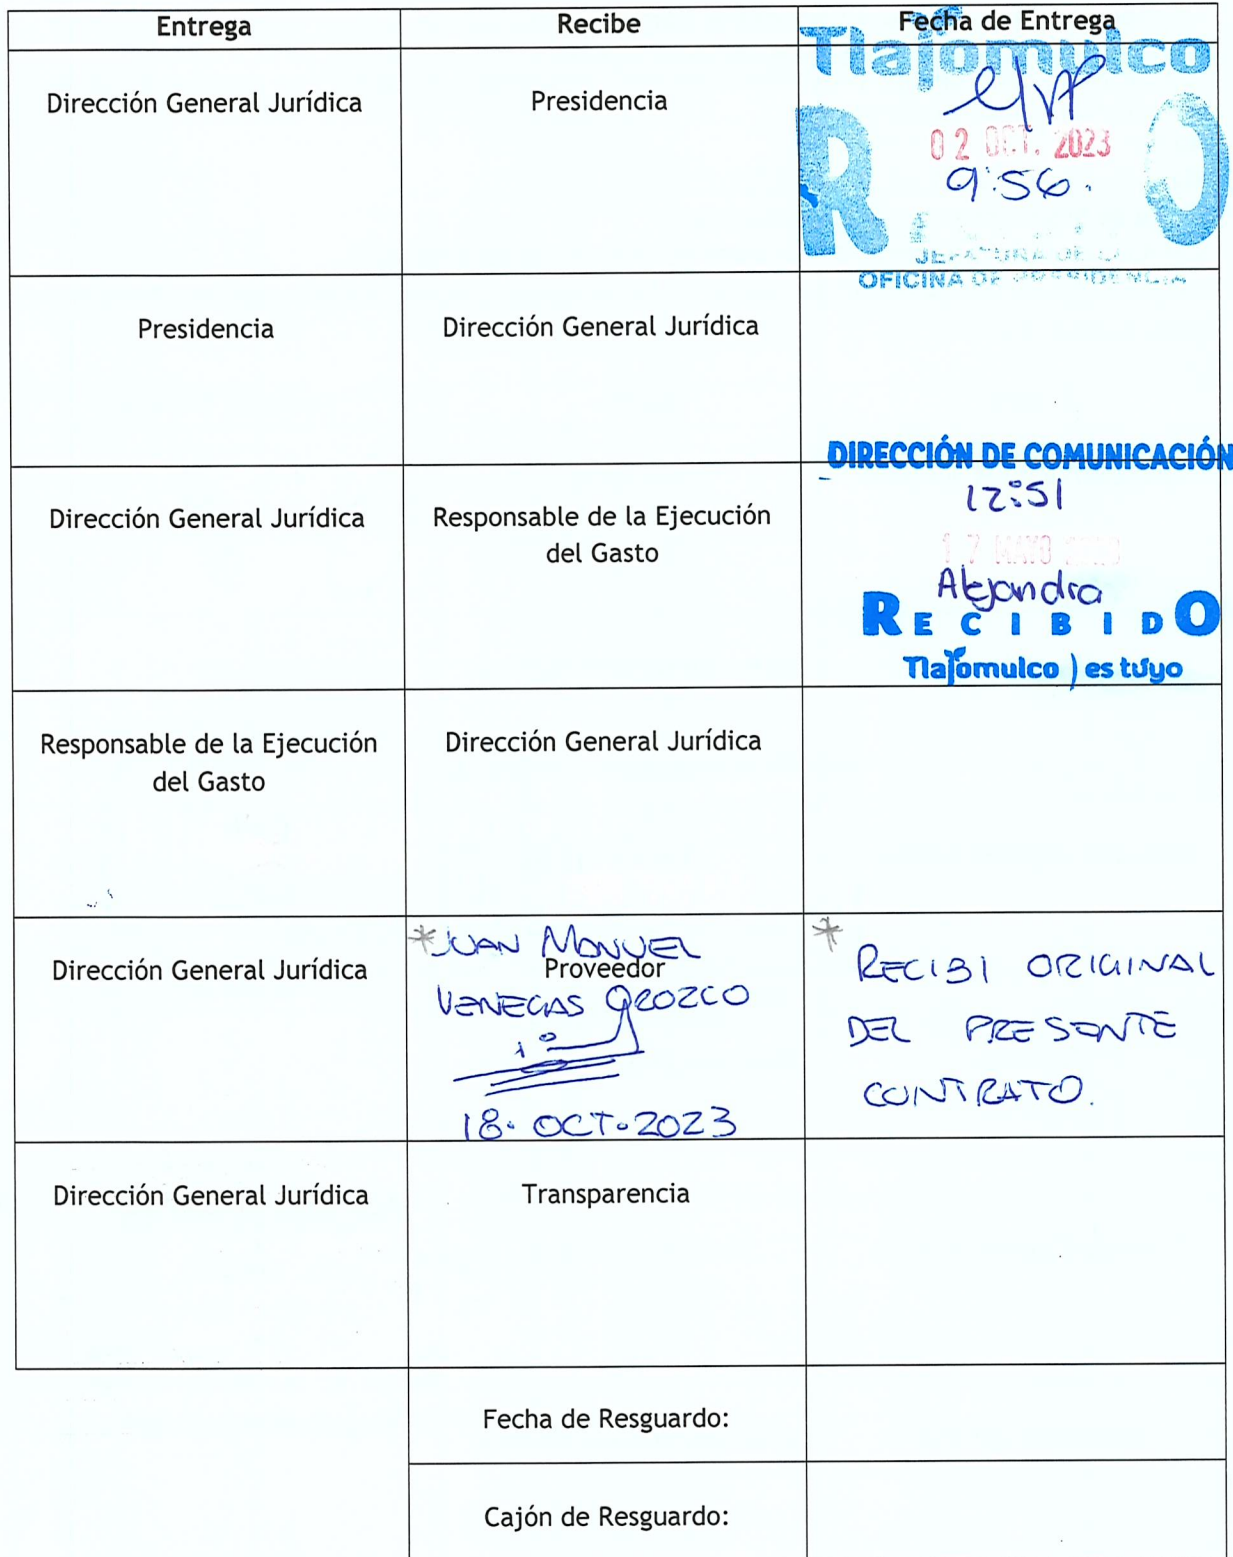 Entrega
Recibe
Fecha de Entrega
Dirección General Jurídica
Presidencia
Tlajomulco
R O
02 OCT. 2023
9:56.
JEFATURA DE LA
OFICINA DE PRESIDENCIA
Presidencia
Dirección General Jurídica
Dirección General Jurídica
Responsable de la Ejecución
del Gasto
DIRECCIÓN DE COMUNICACIÓN
12:51
17 MAYO
Alejandra
RECIBIDO
Tlajomulco ) es tuyo
Responsable de la Ejecución
del Gasto
Dirección General Jurídica
Dirección General Jurídica
*JUAN MANUEL
Proveedor
VENEGAS OROZCO
18. OCT. 2023
* RECIBI ORIGINAL
DEL PRESENTE
CONTRATO.
Dirección General Jurídica
Transparencia
Fecha de Resguardo:
Cajón de Resguardo: